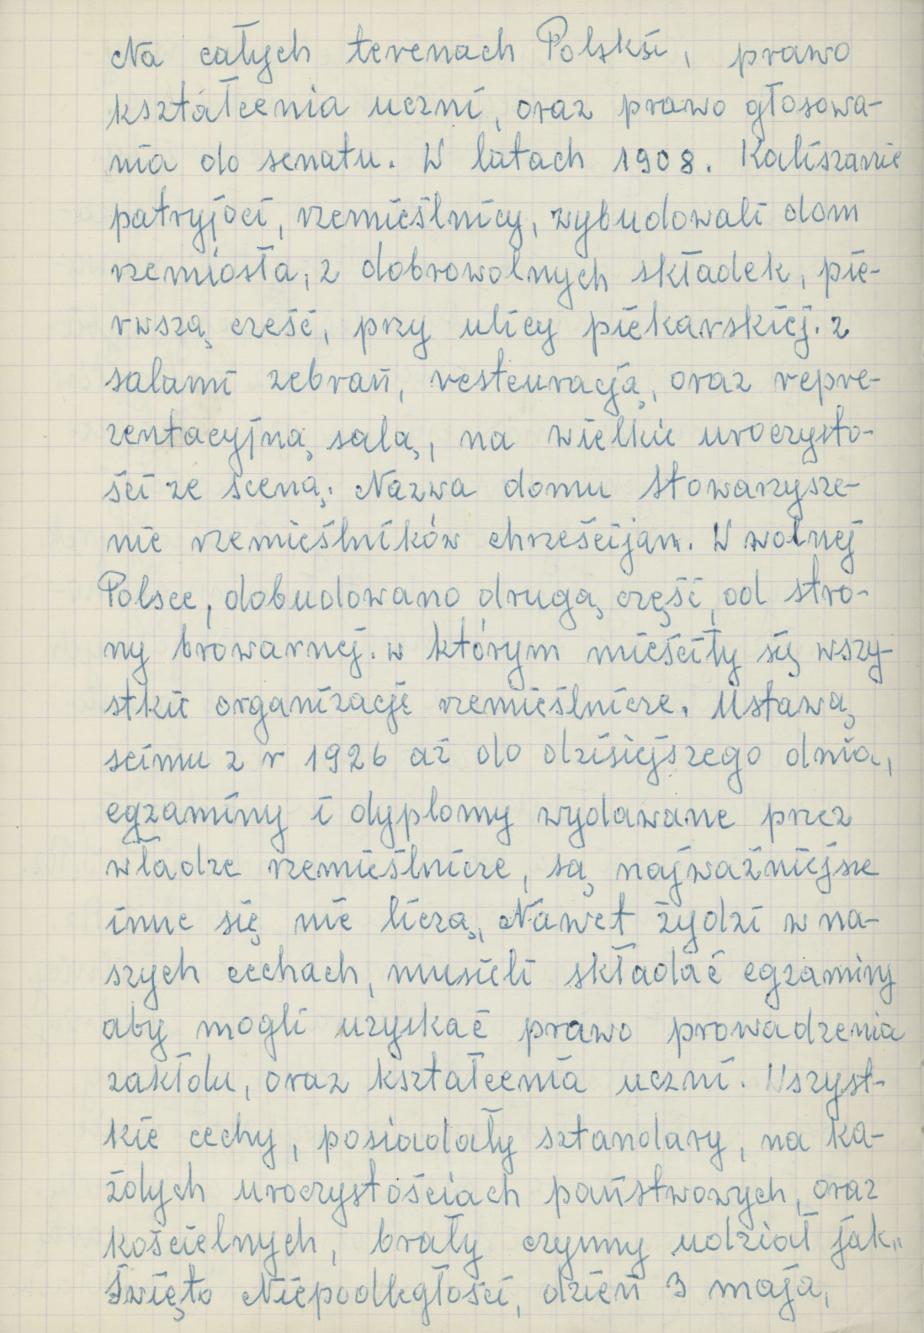 Na całych terenach Polski, prawo
kształcenia uczni, oraz prawo głosowa-
nia do senatu. W latach 1908. Kaliszanie
patryjoci, rzemieślnicy, wybudowali dom
rzemiosła, z dobrowolnych składek, pie-
rwszą cześć, przy ulicy piekarskiej. z
salami zebrań, resteuracją, oraz repre-
zentacyjną salą, na wielkie uroczysto-
ści ze sceną. Nazwa domu stowarzysze-
nie rzemieślników chrześcijan. W wolnej
Polsce, dobudowano drugą część, od stro-
ny browarnej. w którym mieściły się wszy-
stkie organizacje rzemieślnicze. Ustawą
seimu z r 1926 aż do dzisiejszego dnia,
egzaminy i dyplomy wydawane przez
władze rzemieślnicze, są najważniejsze
inne się nie liczą, Nawet żydzi w na-
szych cechach, musieli składać egzaminy
aby mogli uzyskać prawo prowadzenia
zakłdu, oraz kształcenia uczni. Wszyst-
kie cechy, posiadały sztandary, na ka-
żdych uroczystościach państwowych, oraz
kościelnych, brały czynny udział jak,,
Święto Niepodległości, dzień 3 maja,